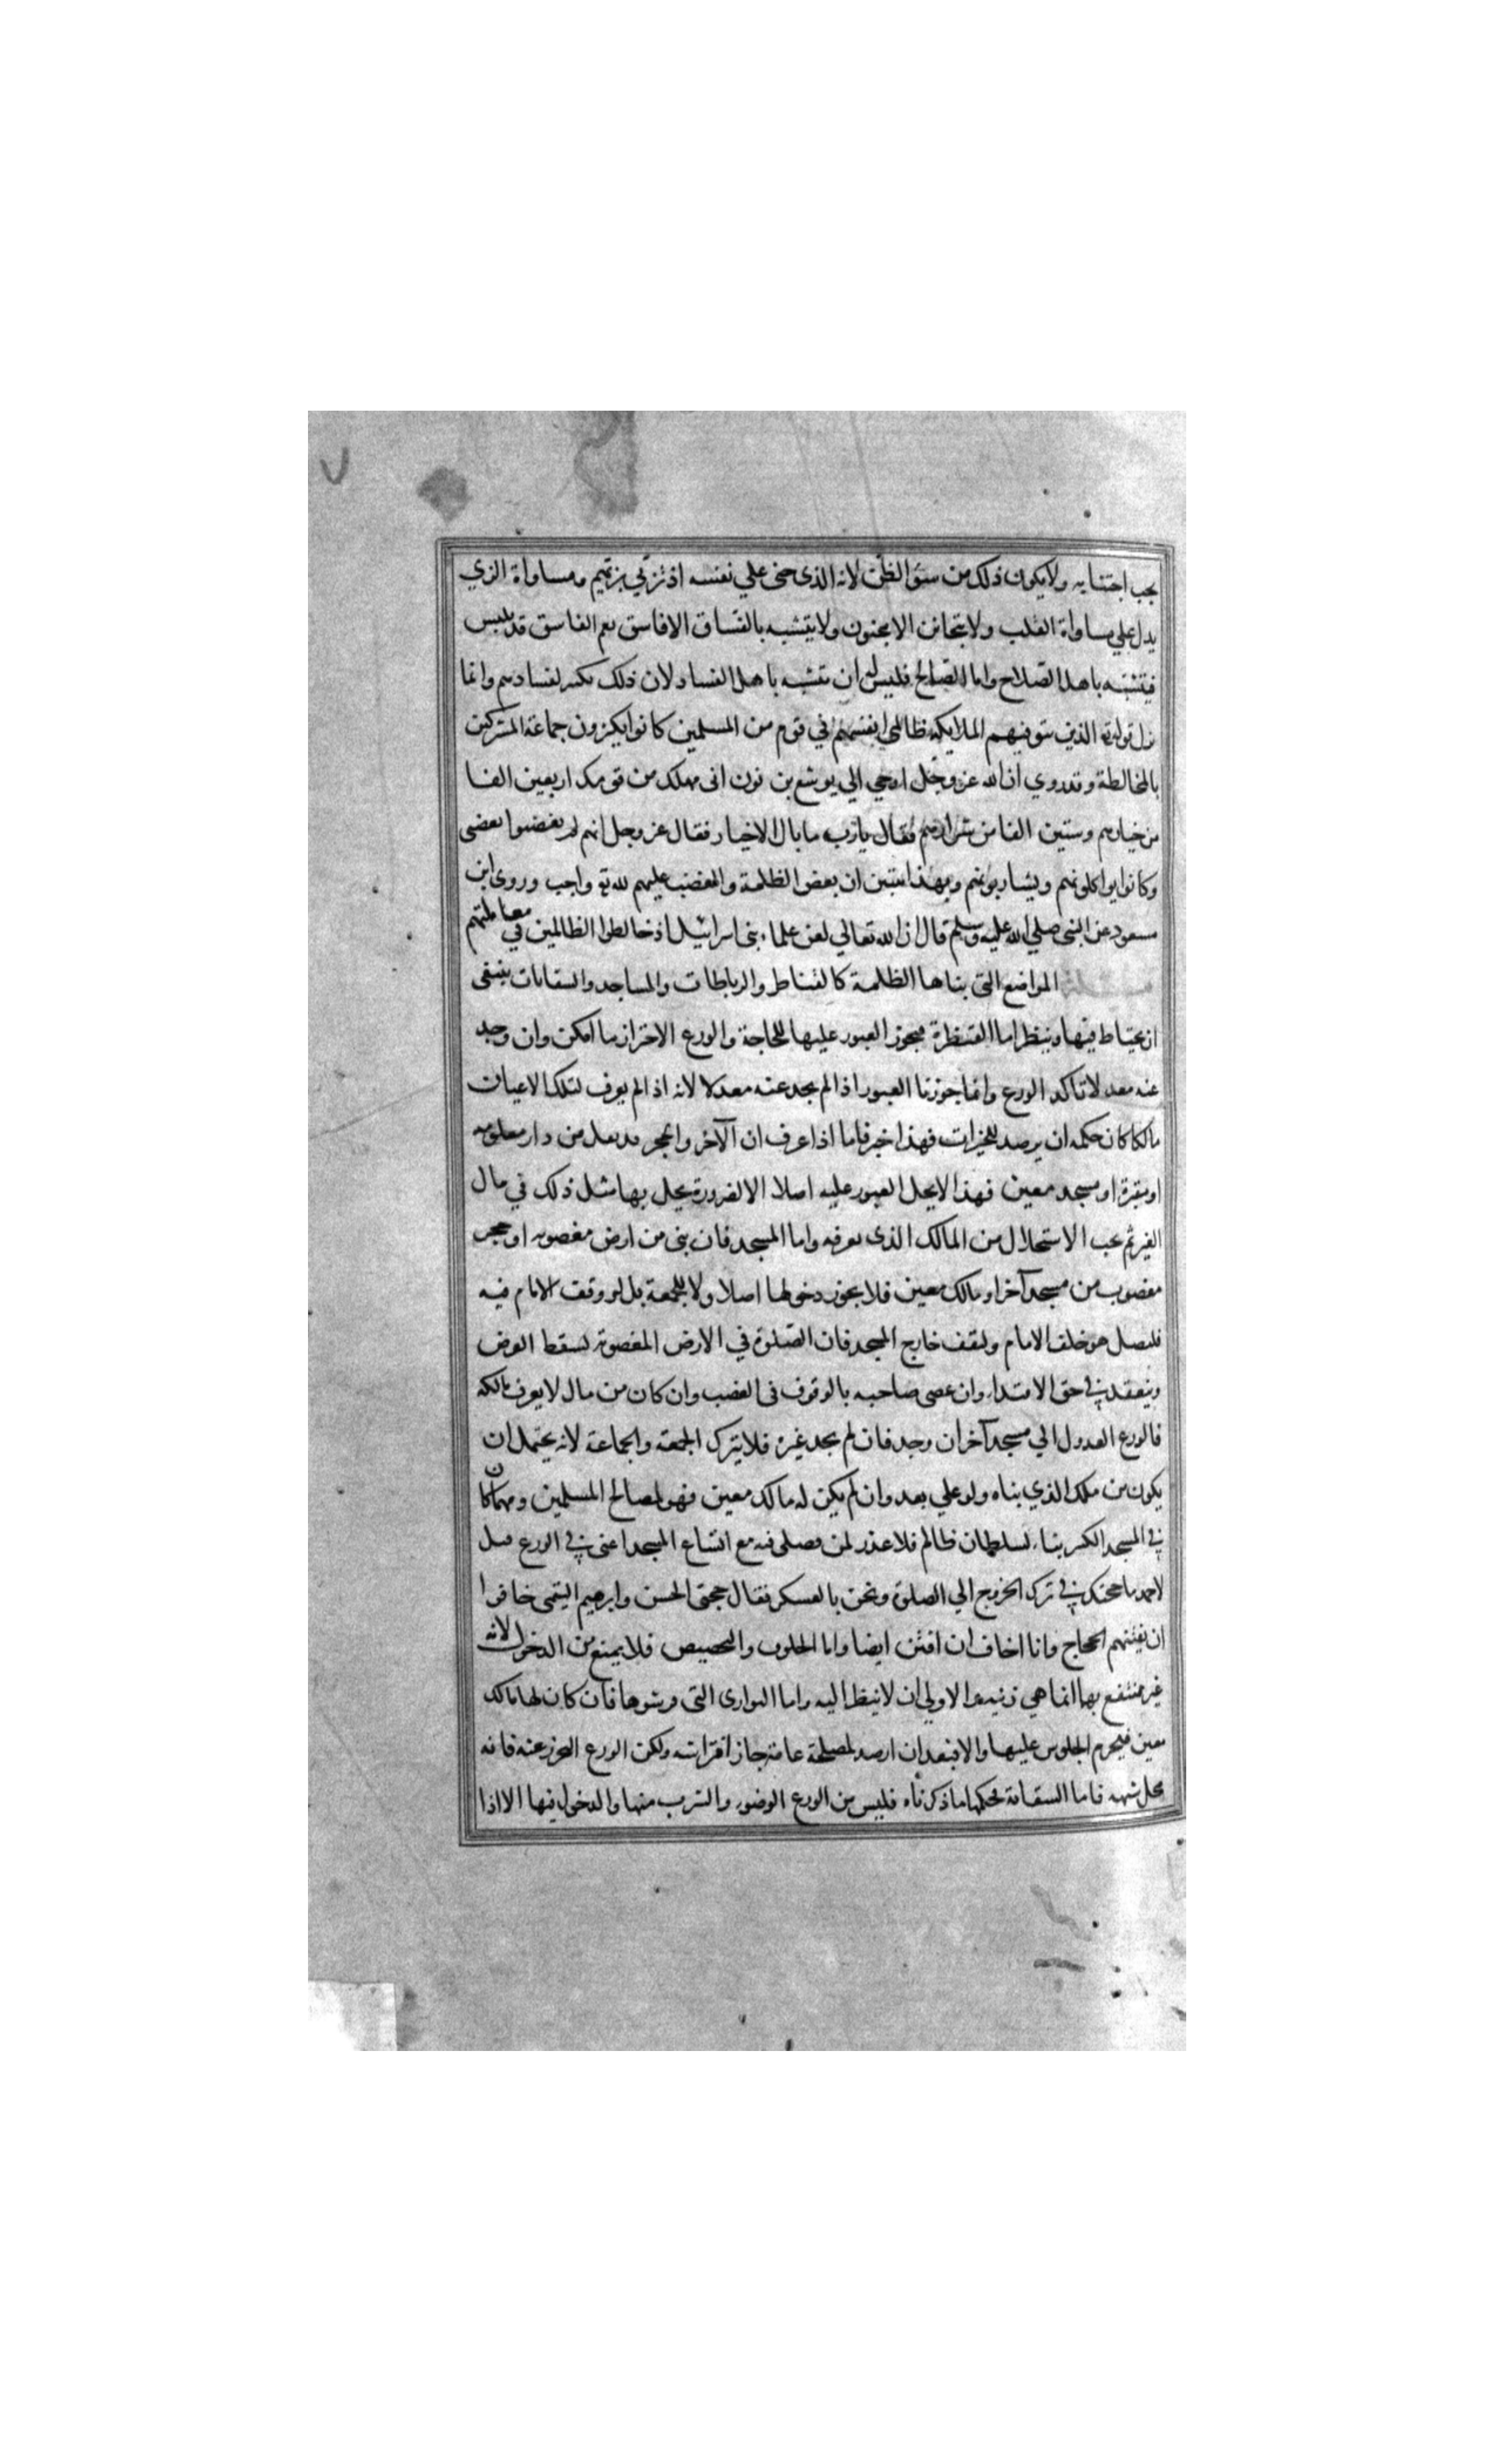 يجب اجتنابه ولا يكون ذلك من سوء الظن لانه الذى جنى علي نفسه اذ تزيّي بزيّهم ومساواة الزي
يدل علي مساواة القلب ولا يتجانن الا مجنون ولا يتشبه بالفساق الا فاسق نعم الفاسق قد يلبس
فيتشبه باهل الصلاح واما الصالح فليس له ان يتشبه باهل الفساد لان ذلك تكثير لسوادهم وانما
نزل قوله تع الذين تتوفيهم الملايكة ظالمى انفسهم في قوم من المسلمين كانوا يكثرون جماعة المشركين
بالمخالطة وقد روي ان الله عز وجل اوحي الي يوشع بن نون انى مهلك من قومك اربعين الفا
من خيارهم وستين الفا من شرارهم فقال يا رب ما بال الاخيار فقال عز وجل انهم لم يغضبوا لغضبى
وكانوا يواكلونهم ويشاربونهم وبهذا يتبين ان بغض الظلمة والغضب عليهم لله تع واجب وروى ابن
مسعود عن النبى صلي الله عليه وسلم قال ان الله تعالي لعن علماء بنى اسرائيل اذ خالطوا الظالمين في معاملتهم
مسئلة المواضع التى بناها الظلمة كالقناطر والرباطات والمساجد والسقايات ينبغى
ان يحتاط فيها وينظر اما القنطرة فيجوز العبور عليها للحاجة والورع الاحتراز ما امكن وان وجد
عنه معدلا تاكد الورع وانما جوزنا العبور اذا لم يجد عنه معدلا لانه اذا لم يعرف لتلك الاعيان
مالكا كان حكمه ان يرصد للخيرات فهذا خير فاما اذا عرف ان الآجر والحجر قد نقل من دار معلومه
او مقبرة او مسجد معين فهذا لا يحل العبور عليه اصلا الا لضرورة يحل بها مثل ذلك في مال
الغير ثم يجب الاستحلال من المالك الذى يعرفه واما المسجد فان بنى من ارض مغصوبه او حجر
مغصوب من مسجد آخر او مالك معين فلا يجوز دخولها اصلا ولا للجمعة بل لو وقف الامام فيه
فليصل هو خلف الامام وليقف خارج المسجد فان الصلوة في الارض المغصوبة تسقط الفرض
وينعقد في حق الاقتداء وان عصى صاحبه بالوقوف فى الغصب وان كان من مال لا يعرف مالكه
فالورع العدول الي مسجد آخر ان وجد فان لم يجد غيره فلا يترك الجمعة والجماعة لانه يحتمل ان
يكون من ملك الذي بناه ولو علي بعد وان لم يكن له مالك معين فهو لمصالح المسلمين ومهما كان
في المسجد الكبير بناء لسلطان ظالم فلا عذر لمن يصلى فيه مع اتساع المسجد اعنى في الورع قيل
لاحمد ما حجتك في ترك الخروج الي الصلوة ونحن بالعسكر فقال حجتى الحسن وابرهيم التيمى خافوا
ان يفتنهم الحجاج وانا اخاف ان افتن ايضا واما الخلوف والتجصيص فلا يمنع من الدخول لانه
غير منتفع بها انما هي زينة والاولي ان لا ينظر اليه واما البوارى التى فرشوها فان كان لها مالك
معين فيحرم الجلوس عليها والا فبعد ان ارصد لمصلحة عامة جاز افتراشه ولكن الورع التحرز عنه فانه
محل شبهه فاما السقاية فحكمها ما ذكرناه فليس من الورع الوضوء والشرب منها والدخول فيها الا اذا